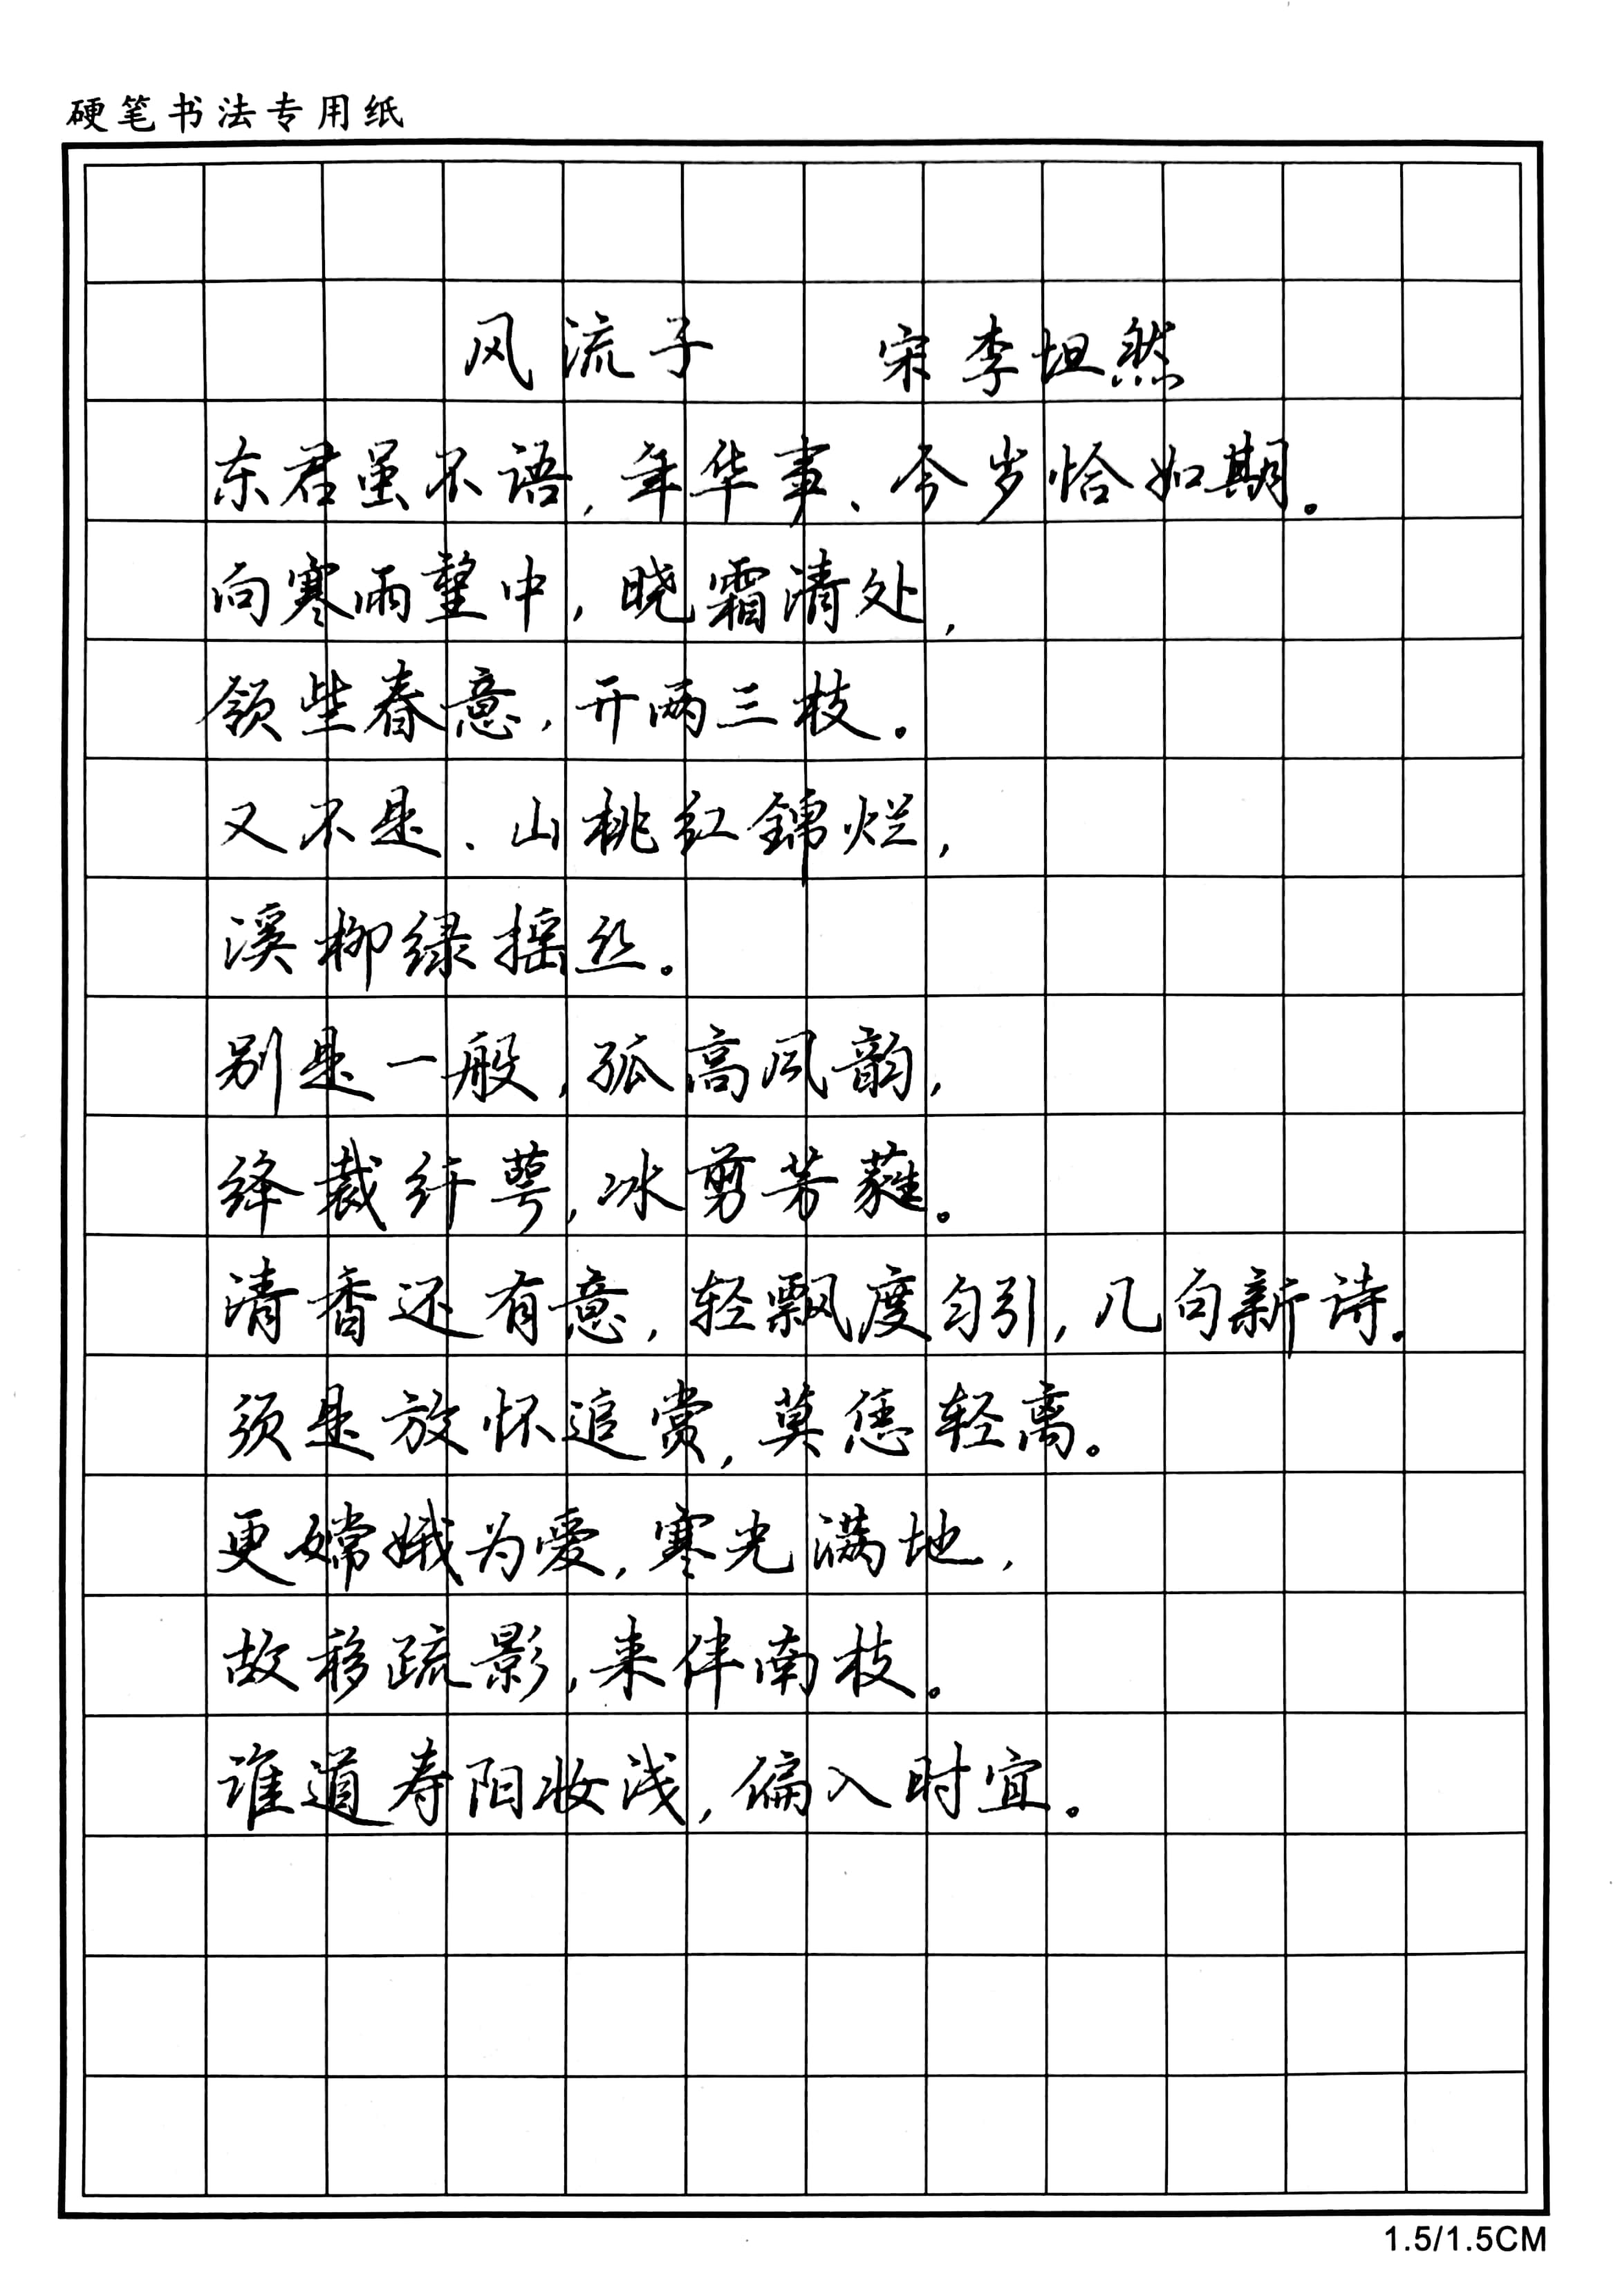 硬笔书法专用纸
风流子 宋李坦然
东君虽不语,年华事、今岁恰如期。
向寒雨望中,晓霜清处,
领些春意,开两三枝。
又不是、山桃红錦烂,
溪柳绿摇丝。
别是一般,孤高风韵,
绛裁纤萼,冰剪芳蕤。
清香还有意,轻飘度勾引,几句新诗。
须是放怀追赏,莫恁轻离。
更嫦娥为爱,寒光满地,
故移疏影,来伴南枝。
谁道寿阳妆浅,偏入时宜。
1.5/1.5CM